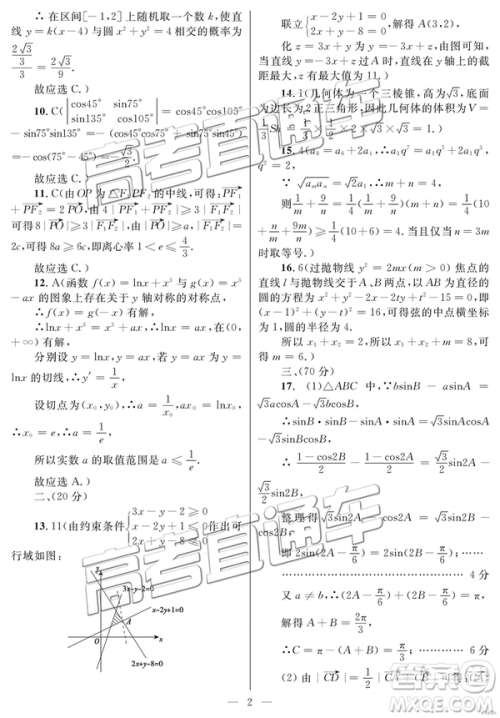 ∴在区间[-1,2]上随机取一个实数k,使直
线y=k(x-4)与圆x²+y²=4相交的概率为
$\frac{\frac{2\sqrt{3}}{3}}{3}=\frac{2\sqrt{3}}{9}$.
故应选C.)
10. C( |cos45° sin75°|
|sin135° cos105°| =cos45°cos105°
-sin75°sin135°=cos45°cos105°-sin75°sin45°
=-cos(75°-45°)=-$\frac{\sqrt{3}}{2}$.
故应选C.)
11. C(由OP为△F₁PF₂的中线,可得:PF₁
+PF₂=2PO,由4|PF₁+PF₂|≥3|F₁F₂|可
得8|PO|≥3|F₁F₂|,由|PO|≥a,|F₁F₂|=
2c,可得8a≥6c,即离心率1<e≤$\frac{4}{3}$.
故应选C.)
12. A(函数f(x)=lnx+x³与g(x)=x³
-ax的图象上存在关于y轴对称的对称点,
∴f(x)=g(-x)有解,
∴lnx+x³=-x³+ax,∴lnx=ax在(0,
+∞)有解,
分别设y=lnx,y=ax,若y=ax为y=
lnx的切线,∴y′=$\frac{1}{x}$,
设切点为(x₀,y₀),∴a=$\frac{1}{x_0}$,ax₀=lnx₀,
∴x₀=e,∴a=$\frac{1}{e}$,
所以实数a的取值范围是a≤$\frac{1}{e}$.
故应选A.)
二、(20分)
13. 11(由约束条件{3x-y-2≥0
x-2y+1≤0
2x+y-8≤0 作出可
行域如图:
y
3x-y-2=0
x-2y+1=0
A
x
2x+y-8=0
联立{x-2y+1=0
2x+y-8=0,解得A(3,2),
化z=3x+y为y=-3x+z,由图可知,
当直线y=-3x+z过A时,直线在y轴上的
截距最大,z有最大值11.)
14. 1(几何体为一个三棱锥,高为√3,底面
为边长为2正三角形,因此几何体的体积V=
15. 4(a₆=a₄+2a₂,∴a₁q⁵=a₁q³+2a₁q,
q²=2,
∴√(aₘaₙ)=√2a₁,∴m+n=4,
16. 6(过抛物线y²=2mx(m>0)焦点的
直线l与抛物线交于A、B两点,以AB为直径的
圆的方程为x²+y²-2x-2ty+t²-15=0,即
(x-1)²+(y-t)²=16,可得弦的中点横坐标
为1,圆的半径为4.
所以x₁+x₂=2,所以x₁+x₂+m=8,可
得m=6.)
三、(70分)
17. (1)△ABC中,∵bsinB-asinA=
√3acosA-√3bcosB,
∴sinB·sinB-sinA·sinA=√3sinAcosA
-√3sinBcosB,
∴$\frac{1-cos2B}{2}-\frac{1-cos2A}{2}=\frac{\sqrt{3}}{2}$sin2A-
$\frac{\sqrt{3}}{2}$sin2B,
即2sin(2A-$\frac{π}{6}$)=2sin(2B-$\frac{π}{6}$),
………………… 4分
又a≠b,∴(2A-$\frac{π}{6}$)+(2B-$\frac{π}{6}$)=π,
解得A+B=$\frac{2π}{3}$,
— 2 —
高考直通车
高考直通车
高考直通车